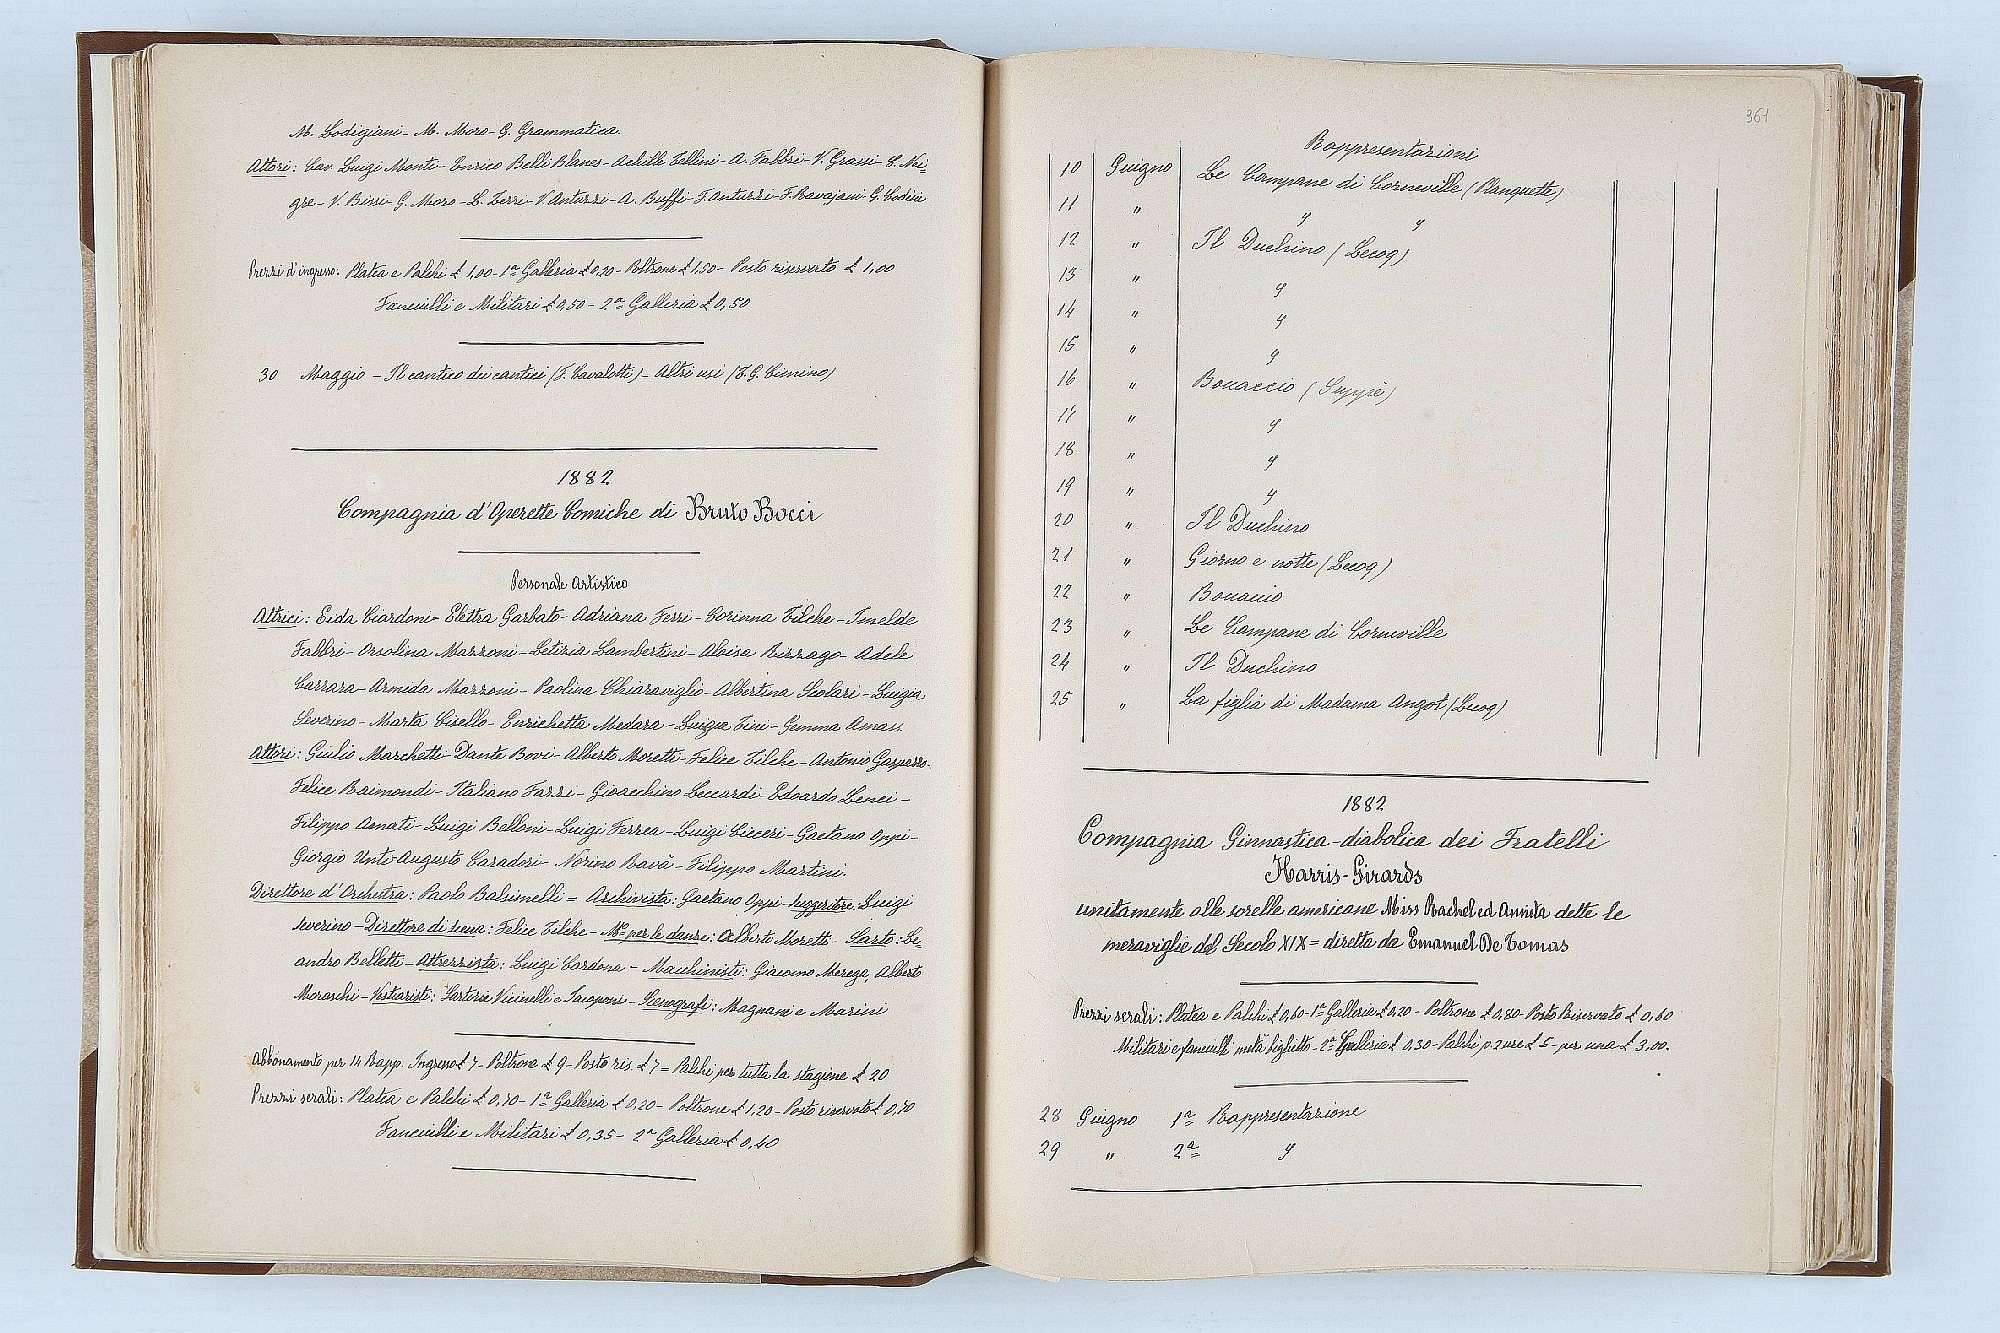 M. Lodigiani - M. Moro - G. Grammatica.
Attori: Cav. Luigi Monti - Enrico Belli Blanes - Achille Tellini - A. Fabbri - V. Grassi - C. Nei-
gre - V. Bissi - G. Moro - L. Zerri - V. Antuzzi - A. Buffi - F. Antuzzi - F. Ravajani G. Codici
Prezzi d'ingresso: Platea e Palchi £ 1,00 - 1ª Galleria £ 0,20 - Poltrone £ 1,50 - Posto riservato £ 1,00
Fanciulli e Militari £ 0,50 - 2ª Galleria £ 0,50
30 Maggio - Il cantico dei cantici (F. Cavalotti) - Altri usi (F. G. Cimino)
1882
Compagnia d'Operette Comiche di Bruto Bocci
Personale Artistico
Attrici: Elettra Garbato - Adriana Ferri - Corinna Tilche - Imelde
Fabbri - Orsolina Mazzoni - Letizia Lambertini - Aloisa Bizzago - Adele
Carrara - Armida Mazzoni - Paolina Chiaraviglio - Albertina Scolari - Luigia
Severino - Marta Cisello - Enrichetta Medora - Luigia Tini - Gemma Amati.
Attori: Giulio Marchetti - Dante Bovi - Alberto Moretti - Felice Tilche - Antonio Gasparro -
Felice Raimondi - Italiano Fazzi - Gioacchino Ceccardi Edoardo Lenci -
Filippo Amati - Luigi Belloni - Luigi Ferrea - Luigi Ciceri - Gaetano Oppi -
Giorgio Unti - Augusto Caradori - Norino Bavà - Filippo Martini.
Direttore d'Orchestra: Paolo Balsimelli = Archivista: Gaetano Oppi - Suggeritore: Luigi
Severino - Direttore di scena: Felice Tilche - Mº per le danze: Alberto Moretti - Sarto: Le-
andro Belletti - Attrezzista: Luigi Cardona - Macchinisti: Giacomo Merega, Alberto
Moraschi - Vestiaristi: Sartorie Vicinelli e Jacoponi - Scenografi: Magnani e Marini
Abbonamento per 14 Rapp. Ingresso £ 7 - Poltrone £ 9 - Posto ris. £ 7 = Palchi per tutta la stagione £ 20
Prezzi serali: Platea e Palchi £ 0,70 - 1ª Galleria £ 0,20 - Poltrone £ 1,20 - Posto riservato £ 0,70
Fanciulli e Militari £ 0,35 - 2ª Galleria £ 0,40
361
Rappresentazioni
10 Giugno Le Campane di Corneville (Planquette)
11 " " "
12 " Il Duchino (Lecoq)
13 " "
14 " "
15 " "
16 " Boccaccio (Suppè)
17 " "
18 " "
19 " "
20 " Il Duchino
21 " Giorno e notte (Lecoq)
22 " Boccaccio
23 " Le Campane di Corneville
24 " Il Duchino
25 " La figlia di Madama Angot (Lecoq)
1882
Compagnia Ginnastica-diabolica dei Fratelli
Harris-Girards
unitamente alle sorelle americane Miss Rachel ed Annita dette le
meraviglie del Secolo XIX = diretta da Emanuel De Tomas
Prezzi serali: Platea e Palchi £ 0,60 - 1ª Galleria £ 0,20 - Poltrone £ 0,80 - Posto Riservato £ 0,60
Militari e fanciulli metà biglietto - 2ª Galleria £ 0,30 - Palchi p. 2 sere £ 5 - per una £ 3,00.
28 Giugno 1ª Rappresentazione
29 " 2ª "